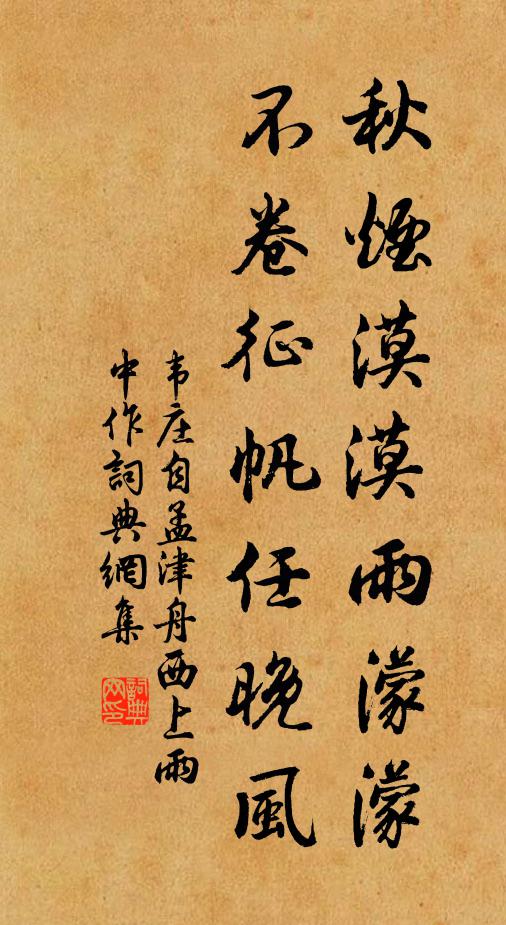 秋煙漠漠雨濛濛
不卷征帆任晚風
韦庄自孟津舟西上雨
中作詞典網集
詞典
网印